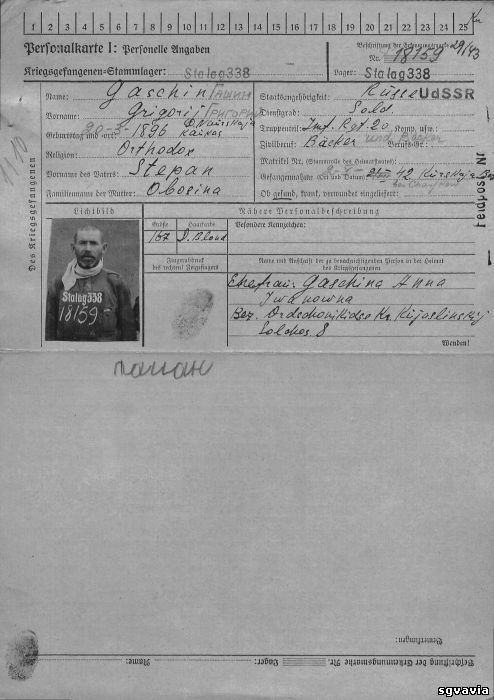 1 2 3 4 5 6 7 8 9 10 11 12 13 14 15 16 17 18 19 20 21 22 23 24 25
Personalkarte I: Personelle Angaben
Kriegsgefangenen-Stammlager: Stalag338
Beschriftung der Erkennungsmarke
Nr. 18159
Lager: Stalag338
Des Kriegsgefangenen
Name: Gaschin ГАШИН
Vorname: Grigorij ГРИГОРИЙ
Geburtstag und -ort: 20-3-1896 Kaukas
Religion: Orthodox
Vorname des Vaters: Stepan
Familienname der Mutter: Obosina
Staatsangehörigkeit: Russe UdSSR
Dienstgrad: Sold
Truppenteil: Inf. Rgt. 20 Komp. usw.:
Zivilberuf: Bäcker Berufs-Gr.:
Matrikel Nr. (Stammrolle des Heimatstaates):
Gefangennahme (Ort und Datum): 42
Ob gesund, krank, verwundet eingeliefert:
Feldpost Nr
Lichtbild
Stalag338
18159
Nähere Personalbeschreibung
Größe Haarfarbe
167 D. Blond
Besondere Kennzeichen:
Fingerabdruck
des rechten Zeigefingers
Name und Anschrift der zu benachrichtigenden Person in der Heimat
des Kriegsgefangenen
Ehefrau Gaschina Anna
Iwanowna
Bez. Ordschonikidse
Solchos 8
Wenden!
Bemerkungen:
Beschriftung der Erkennungsmarke Nr. Lager: Name:
sgvavia